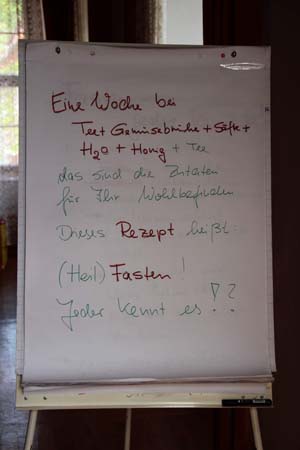 Eine Woche bei
Tee + Gemüsebrühe + Säfte +
H₂O + Honig + Tee
das sind die Zutaten
für Ihr Wohlbefinden
Dieses Rezept heißt:
(Heil) Fasten!
Jeder kennt es!?